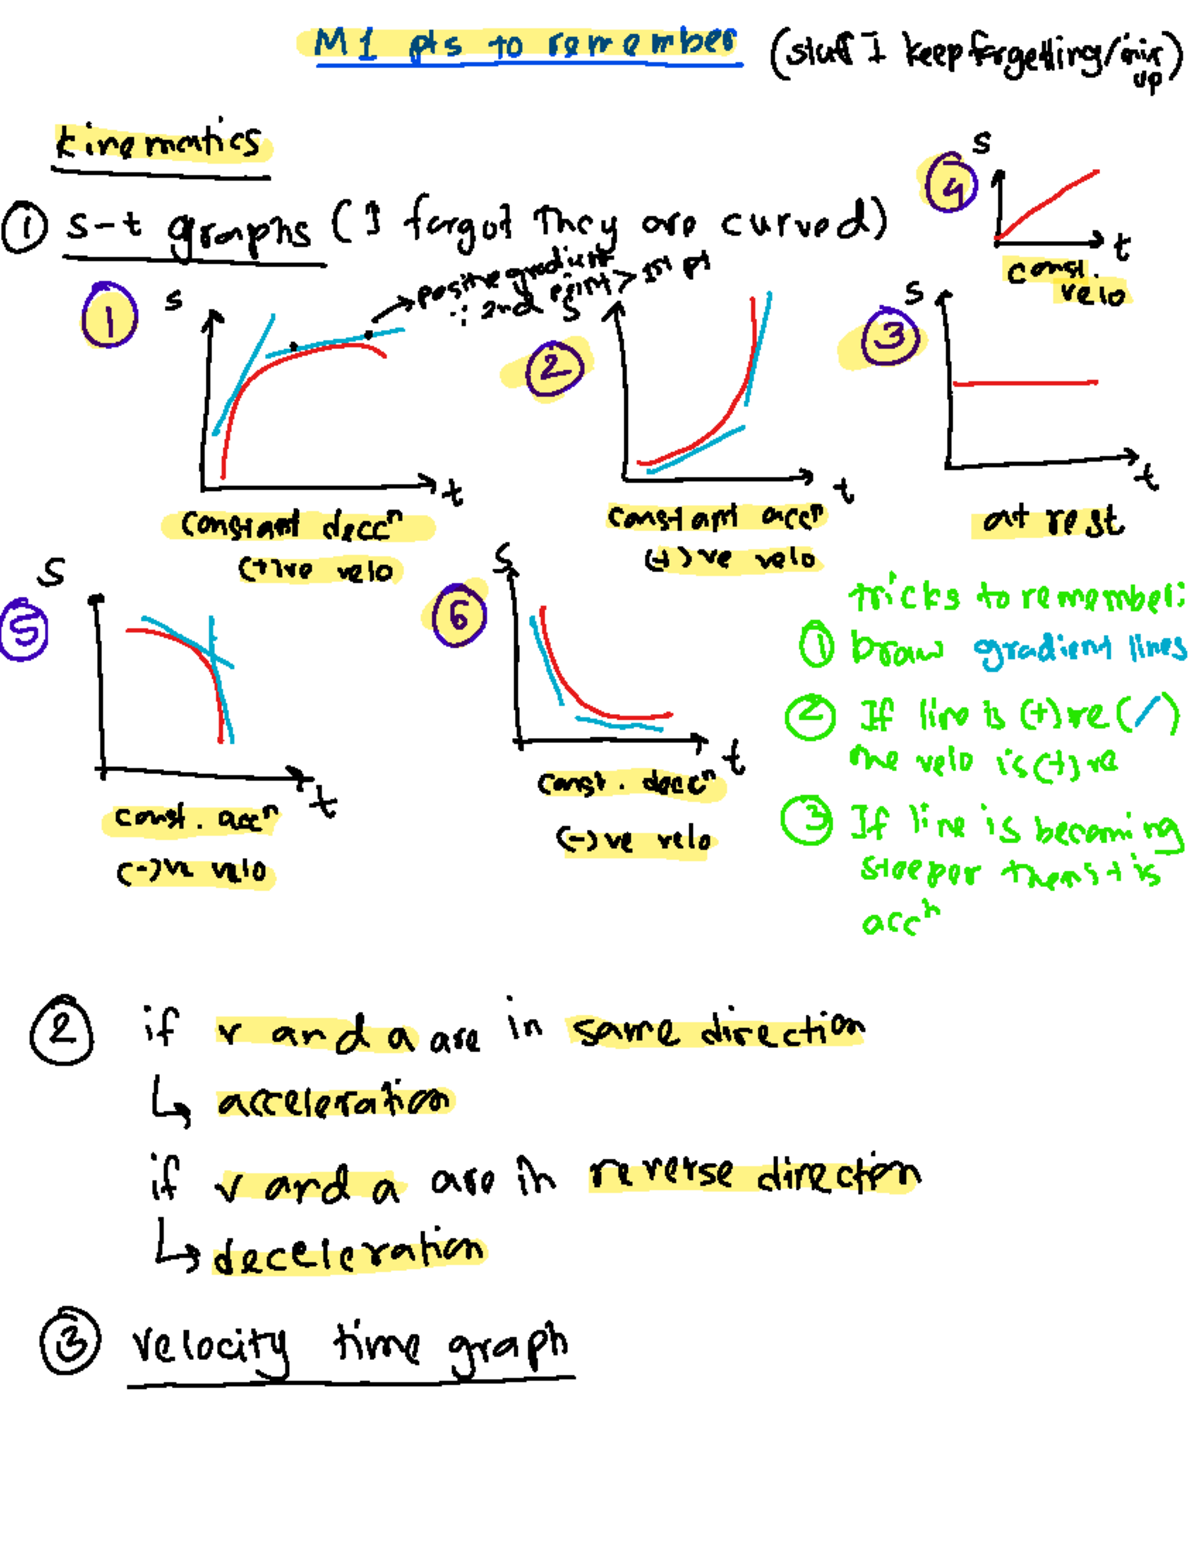 M1 pts to remember (stuff I keep forgetting/mix up)
kinematics
① s-t graphs (I forgot they are curved)
④
s
t
const. velo
①
s
positive gradient
∵ 2nd point > 1st pt
t
constant deccⁿ
(+)ve velo
②
s
t
constant accⁿ
(+)ve velo
③
s
t
at rest
⑤
s
t
const. accⁿ
(-)ve velo
⑥
s
t
const. deccⁿ
(-)ve velo
tricks to remember:
① Draw gradient lines
② If line is (+)ve (/)
the velo is (+)ve
③ If line is becoming
steeper then it is
accⁿ
② if v and a are in same direction
↳ acceleration
if v and a are in reverse direction
↳ deceleration
③ velocity time graph